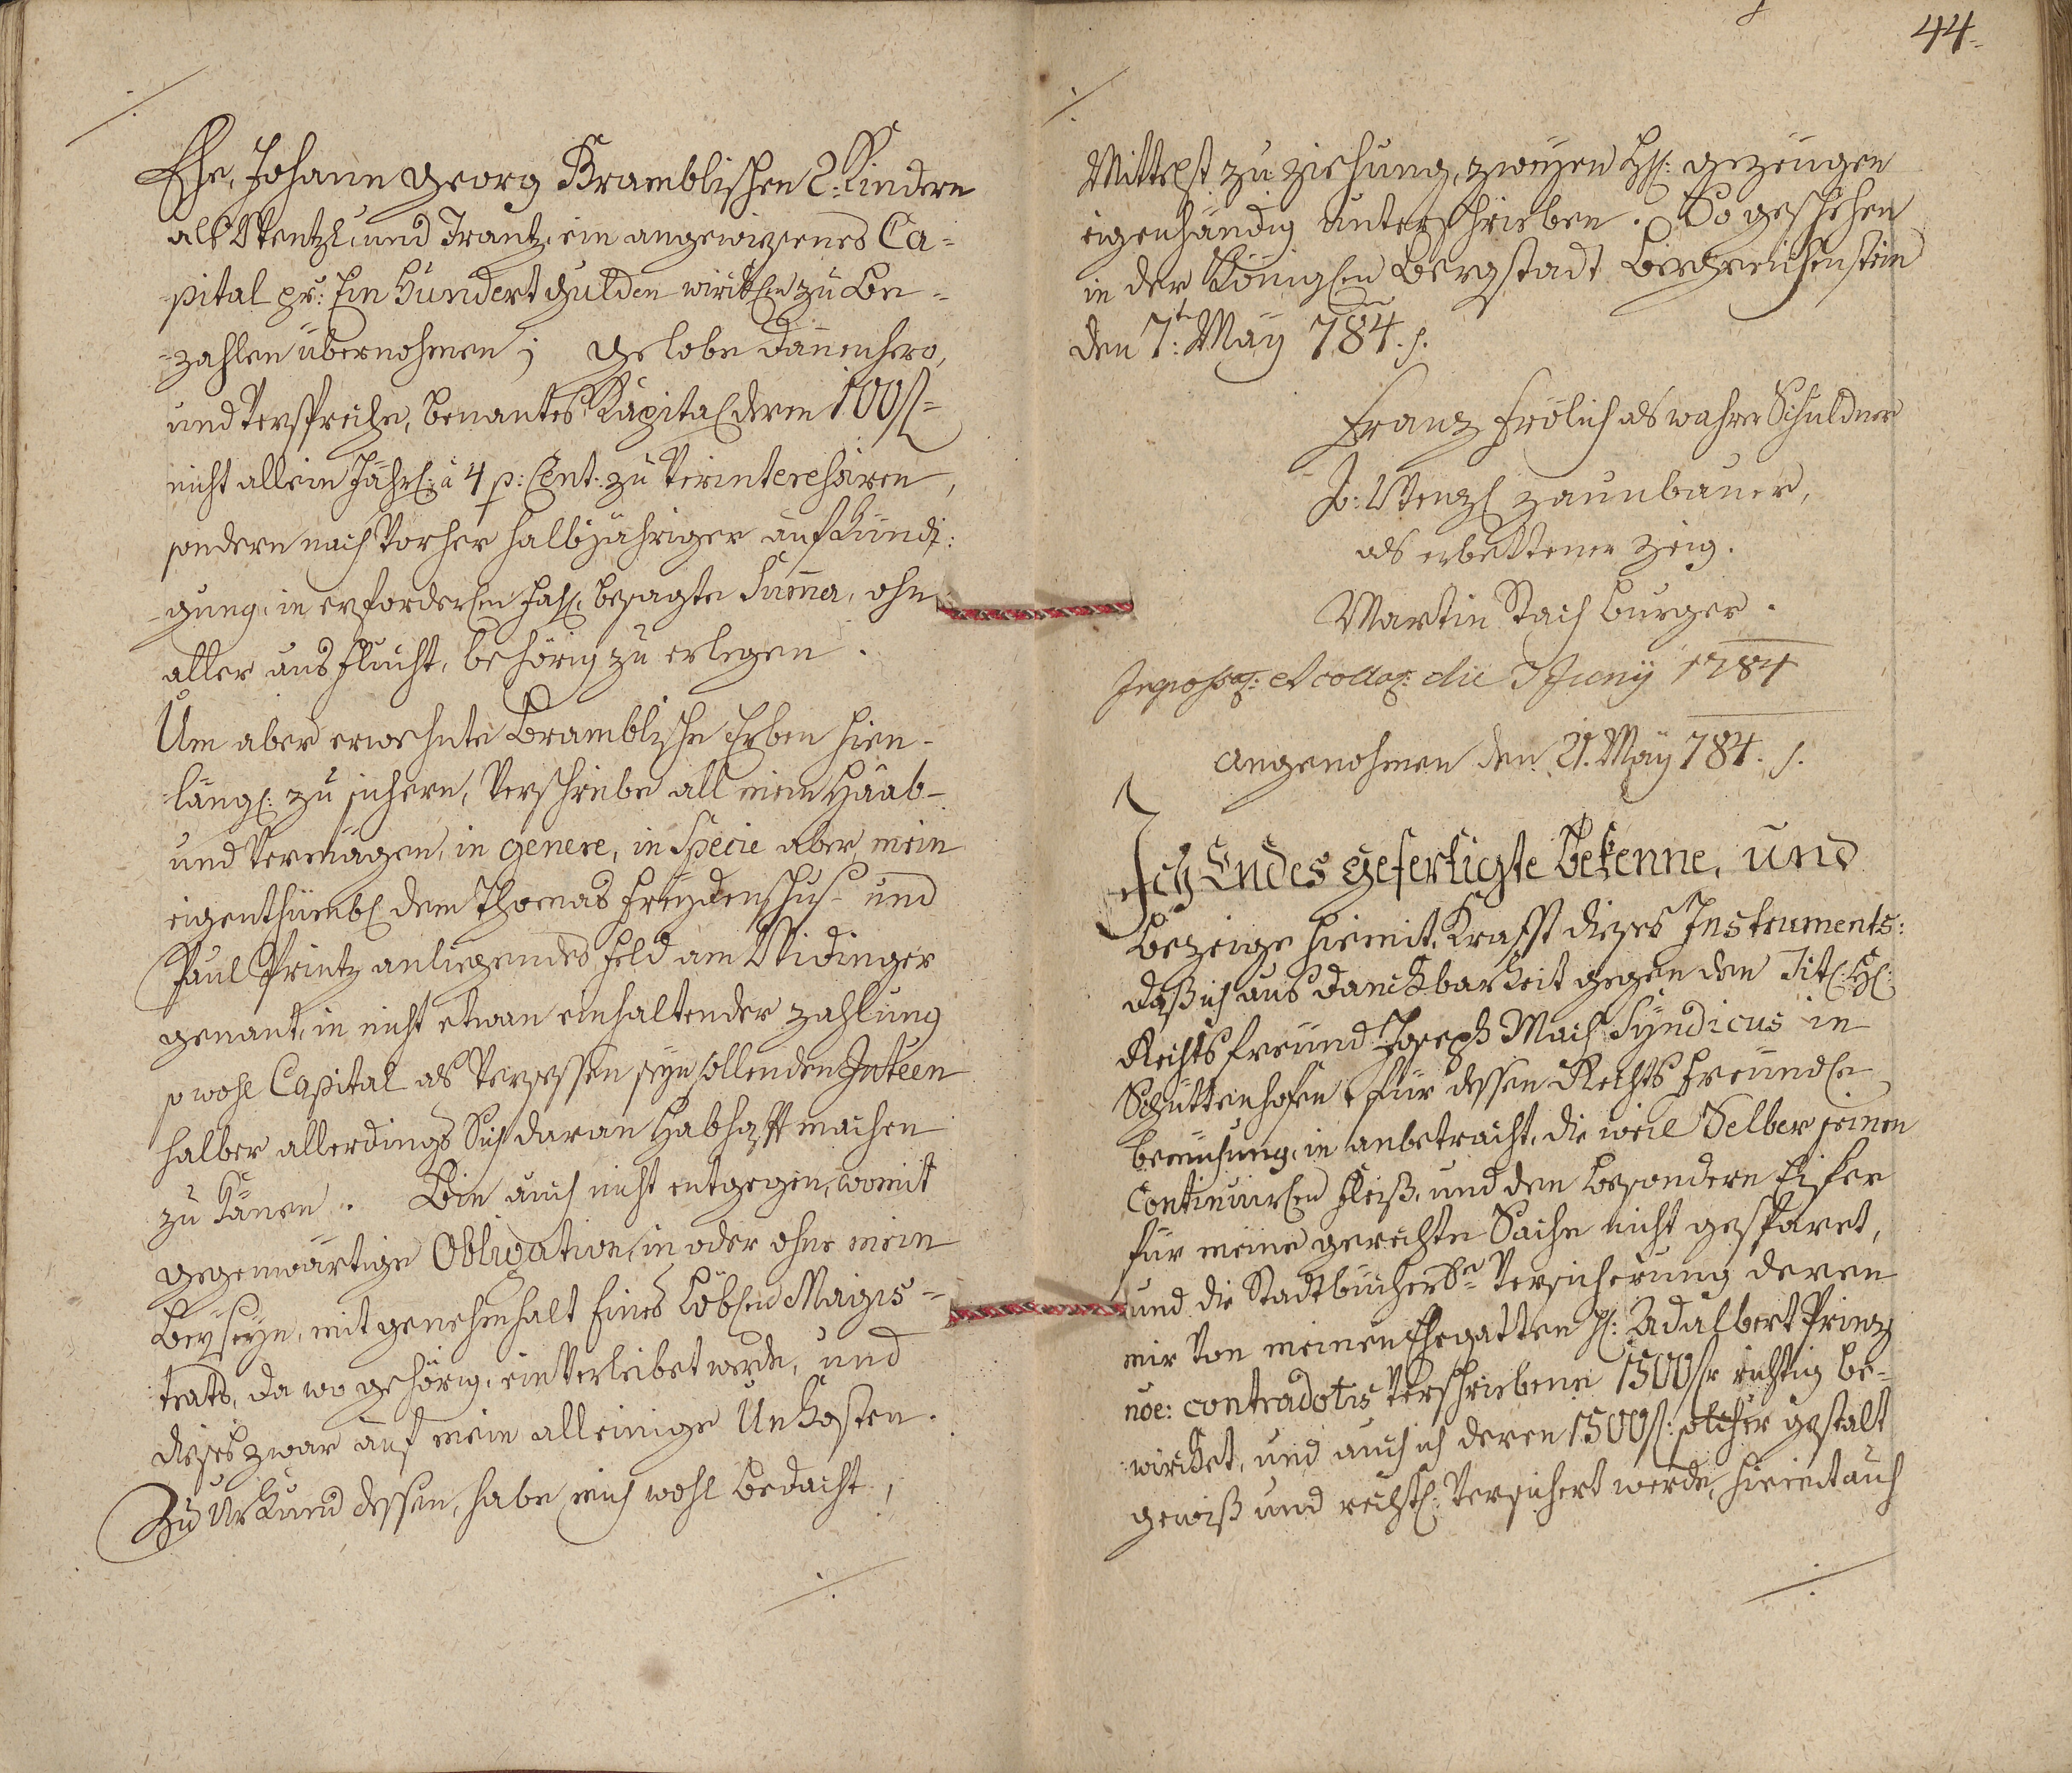 Ehe, Johann Georg Bramblischen 2: Kindern
als Wentzl, und Frantz, ein angewiesenes Ca=
pital pr: Ein Hundert Gulden wirckl[ichen] zu Be=
=zahlen übernohmen; gelobe dannenhero,
und verspreche, benantes Kapital deren 100 fl=
nicht allein Jährl: à 4 p: Cent: zu verinteressiren,
sondern nach vorher halbjähriger aufkündi:
=gung, in erforderl[ichen] fahl, besagte Summa, ohne
aller ausflucht, behörig zu erlegen.
Um aber erwehnte Bramblische Erben hin=
längl: zu sichern, verschreibe all mein Haab=
und Vermögen, in genere, in Specie aber, mein
eigenthümbl dem Thomas Freydenschus= und
Paul Printz anliegendes Feld am Widinger
genant, in nicht etwan einhaltender zahlung
so wohl Capital als versessen seyn sollenden Inteen
halber allerdings Sich daran Habhafft machen
zu können. Bin auch nicht entgegen, womit
gegenwärtige Obligation, in oder ohne mein
Beyseyn, mit genehmhalt Eines Löbl[ichen] Magis=
trats, da wo gehörig, einverleibet werde, und
dieses zwar auf mein alleinige Unkosten.
Zu Urkund dessen, habe mich wohl bedacht,
44.
Mittelst zu ziehung, zweyen H: gezeugen
eigenhändig unterschrieben. So geschehen
in der Königl[ichen] Bergstadt Bergreichenstein
den 7t: May 784.
Franz Frölich als wahrer Schuldner
J: Wenzl Zaunbauer,
als erbettener Zeig.
Martin Stach Burger.
Ingrossat: et collat: die 7 Juny 1784
Angenohmen den 21. May 784.
Ich Endes gefertigte bekenne, und
Bezeige hiemit, Krafft dieses Instruments:
daß ich aus Danckbarkeit gegen den Titl: H:
Rechtsfreund Joseph Mach Syndicus in
Schüttenhofen für dessen Rechtsfreundl[iche]
bemühung, in anbetracht, die weil Selber seinen
Continuirl[ichen] Fleiß, und den besondern Eifer
für meine gerechte Sache nicht gesparet,
und die Stadtbücherl[iche] Versicherung deren
mir von meinen Ehegatten H: Adalbert Prinz
noe: contradotis verschriebene 1500 fr richtig be=
wircket, und auch ich deren 1500 fl: solcher gestalt
gewiß und rechtl: Versichert werde, hiemit auch